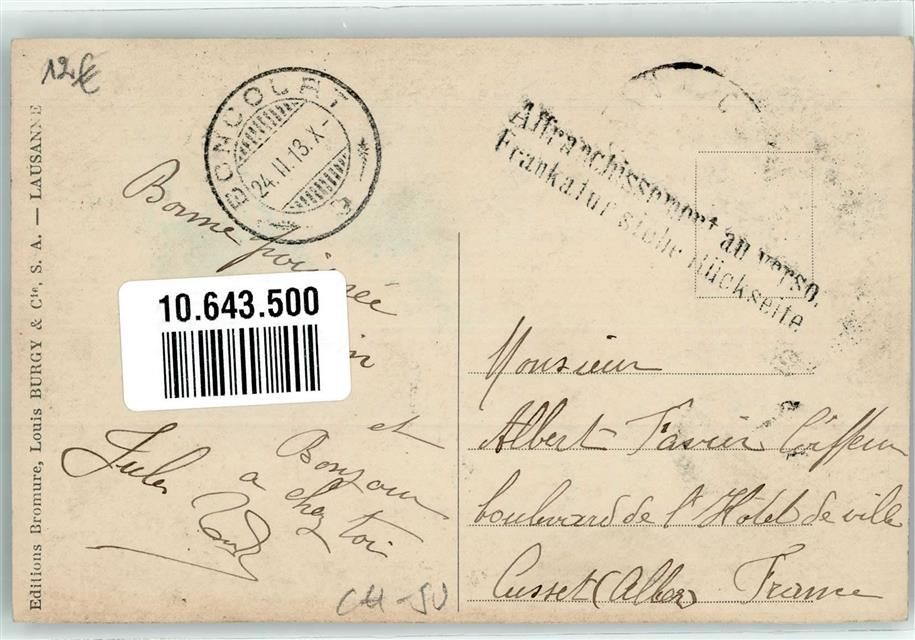 12 €
Editions Bromure, Louis BURGY & Cie, S. A. — LAUSANNE
BONCOURT
24.II.13.X-
Affranchissement au verso.
Frankatur siehe Rückseite
Bonne
10.643.500
et
Bonjour
a chez toi
Jules
Monsieur
Albert Favier Coiffeur
boulevard de l'Hôtel de ville
Cusset (Allier) France
CH-JU